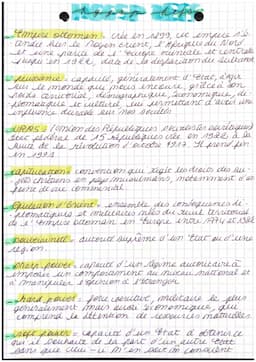 Empire ottoman : crée en 1299, cet empire s'é-
tendie hier le Moyen Orient, l'Afrique du Nord
et une partie de l'Europe orientale et centrale
jusqu'en 1922, date de la disparition du sultanat
puissance : capacité, généralement d'Etat, d'agir
sur le monde qui nous entoure, grâce à son
poids territorial, démographique, économique, di-
plomatique et culturel, lui permettant d'avoir une
influence durable sur nos sociétés
URSS : l'Union des Républiques socialistes soviétiques
est formée de 15 républiques crée en 1922, à la
suite de la révolution d'octobre 1917. Il prend fin
en 1991
capitulations : convention que règle les droits des su-
jets chrétiens en pays musulmans, notamment d'en
faire de commercial
Question d'Orient : ensemble des conséquences di-
plomatiques et militaires nées du recul territorial
de l'Empire ottoman en Europe entre 1774 et 1923
souveraineté : autorité suprême d'un Etat ou d'une
région
sharp power : capacité d'un régime autoritaire à
imposer un comportement au niveau national et
à manipuler l'opinion à l'étranger
hard power : force coercitive, militaire le plus
généralement mais aussi économique, qui
comprend la détention de ressources naturelles
soft power : capacité d'un Etat à obtenir ce
qu'il souhaite de la part d'un autre Etat
sans que celui-ci n'en soit conscient